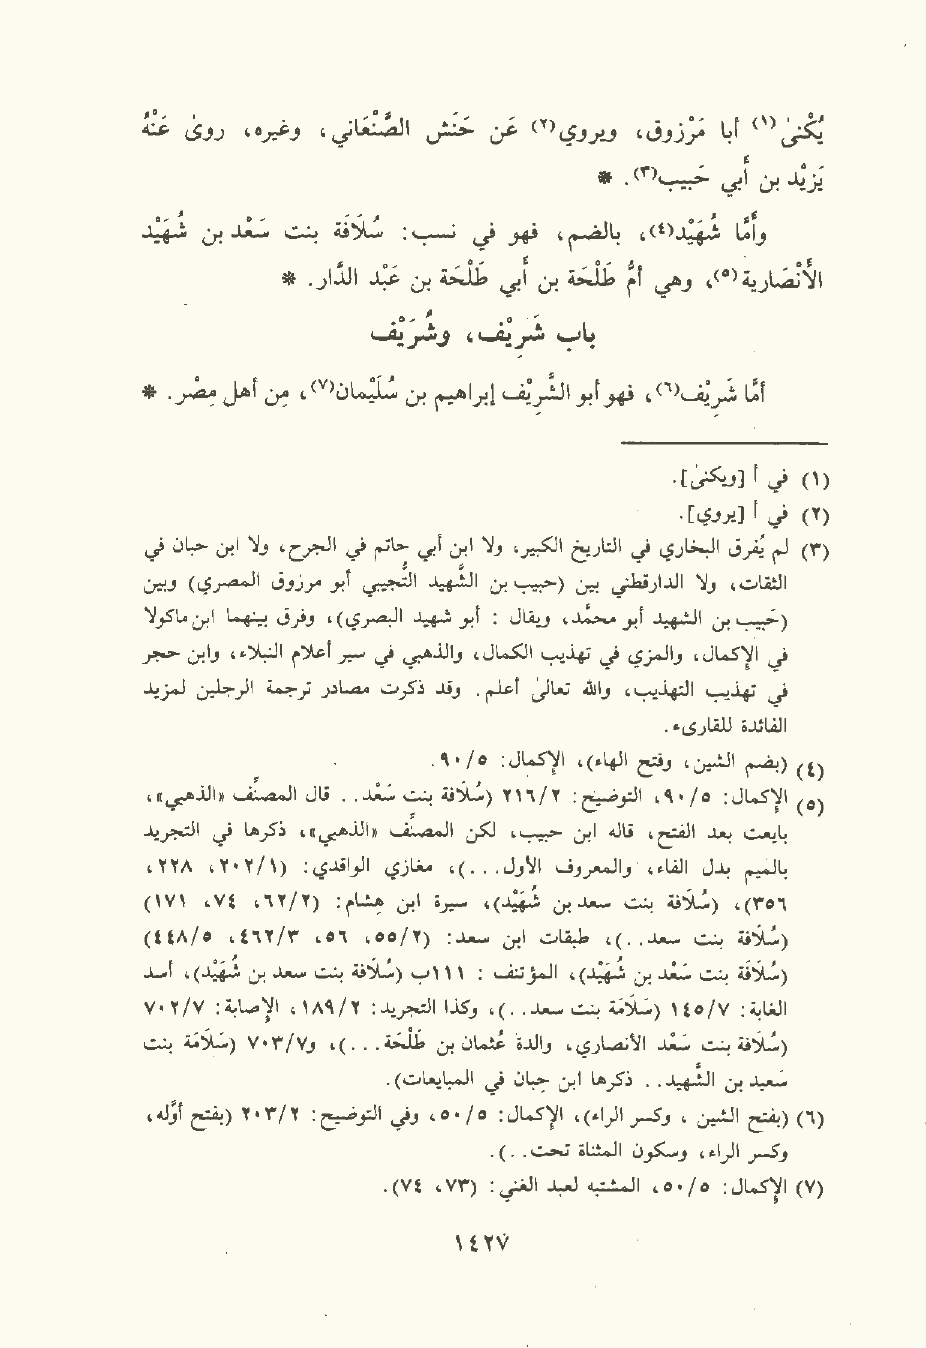 يُكْنىٰ(١) أبا مَرْزوق، ويروي(٢) عَن حَنَش الصَّنْعَاني، وغيره، روىٰ عَنْهُ
يَزيْد بن أبي حَبيب(٣). *
وأَمَّا شُهَيْد(٤)، بالضم، فهو في نسب: سُلَافَة بنت سَعْد بن شُهَيْد
الأَنْصَارية(٥)، وهي أمّ طَلْحَة بن أَبي طَلْحَة بن عَبْد الدَّار. *
باب شَرِيْف، وشُرَيْف
أمَّا شَرِيْف(٦)، فهو أبو الشَّرِيْف إبراهيم بن سُلَيْمان(٧)، من أهل مِصْر. *
(١) في أ [ويكنىٰ].
(٢) في أ [يروي].
(٣) لم يُفرق البخاري في التاريخ الكبير، ولا ابن أبي حاتم في الجرح، ولا ابن حبان في
الثقات، ولا الدارقطني بين (حبيب بن الشَّهيد التُّجيبي أبو مرزوق المصري) وبين
(حَبيب بن الشهيد أبو محمّد، ويقال: أبو شهيد البصري)، وفرق بينهما ابن ماكولا
في الإِكمال، والمزي في تهذيب الكمال، والذهبي في سير أعلام النبلاء، وابن حجر
في تهذيب التهذيب، والله تعالىٰ أعلم. وقد ذكرت مصادر ترجمة الرجلين لمزيد
الفائدة للقارىء.
(٤) (بضم الشين، وفتح الهاء)، الإِكمال: ٥/ ٩٠.
(٥) الإِكمال: ٥/ ٩٠، التوضيح: ٢/ ٢١٦ (سُلَافة بنت سَعْد. . قال المصنَّف «الذهبي»،
بايعت بعد الفتح، قاله ابن حبيب، لكن المصنّف «الذهبي»، ذكرها في التجريد
بالميم بدل الفاء، والمعروف الأول. . .)، مغازي الواقدي: (١/ ٢٠٢، ٢٢٨،
٣٥٦)، (سُلَافة بنت سعد بن شُهَيْد)، سيرة ابن هِشام: (٢/ ٦٢، ٧٤، ١٧١)
(سُلَافة بنت سعد. .)، طبقات ابن سعد: (٢/ ٥٥، ٥٦، ٣/ ٤٦٢، ٥/ ٤٤٨)
(سُلَافَة بنت سَعْد بن شُهَيْد)، المؤتنف: ١١١ب (سُلَافة بنت سعد بن شُهَيْد)، أسد
الغابة: ٧/ ١٤٥ (سَلَامَة بنت سعد. .)، وكذا التجريد: ٢/ ١٨٩، الإِصابة: ٧/ ٧٠٢
(سُلَافة بنت سَعْد الأنصاري، والدة عُثمان بن طَلْحَة. . .)، و٧/ ٧٠٣ (سَلَامَة بنت
سَعيد بن الشَّهيد. . ذكرها ابن حِبان في المبايعات).
(٦) (بفتح الشين، وكسر الراء)، الإِكمال: ٥/ ٥٠، وفي التوضيح: ٢/ ٢٠٣ (بفتح أوّله،
وكسر الراء، وسكون المثناة تحت. .).
(٧) الإِكمال: ٥/ ٥٠، المشتبه لعبد الغني: (٧٣، ٧٤).
١٤٢٧